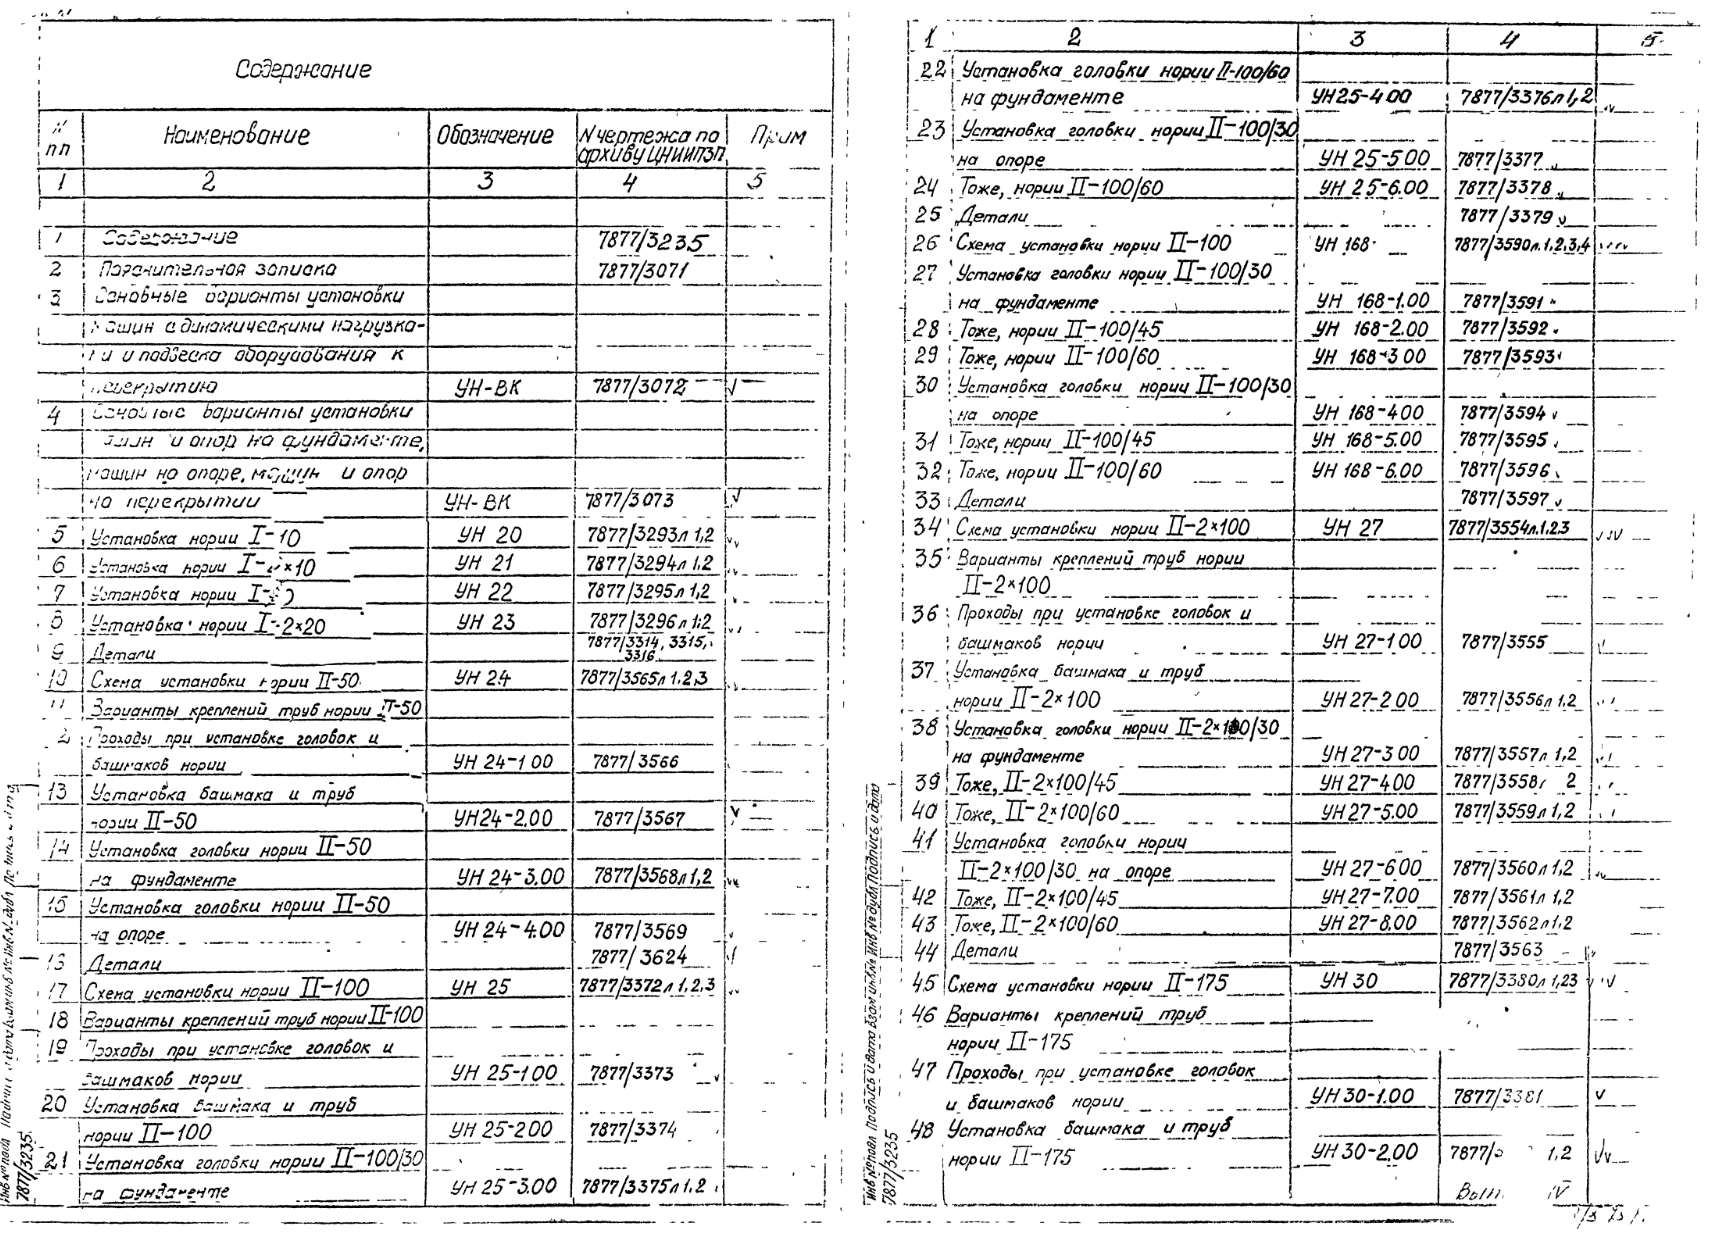 Содержание
N пп Наименование Обозначение N чертежа по архиву ЦНИИПЗП Прим
1 2 3 4 5
1 Содержание 7877/3235
2 Пояснительная записка 7877/3071
3 Основные варианты установки
машин с динамическими нагрузка-
ми и подвеска оборудования к
перекрытию УН-ВК 7877/3072
4 Основные варианты установки
машин и опор на фундаменте,
машин на опоре, машин и опор
на перекрытии УН-ВК 7877/3073
5 Установка нории I-10 УН 20 7877/3293л 1,2
6 Установка нории I-2×10 УН 21 7877/3294л 1,2
7 Установка нории I-20 УН 22 7877/3295л 1,2
8 Установка нории I-2×20 УН 23 7877/3296л 1,2
9 Детали 7877/3314, 3315, 3316
10 Схема установки нории II-50 УН 24 7877/3565л 1,2,3
11 Варианты креплений труб нории II-50
12 Проходы при установке головок и
башмаков нории УН 24-1.00 7877/3566
13 Установка башмака и труб
нории II-50 УН 24-2.00 7877/3567
14 Установка головки нории II-50
на фундаменте УН 24-3.00 7877/3568л 1,2
15 Установка головки нории II-50
на опоре УН 24-4.00 7877/3569
16 Детали 7877/3624
17 Схема установки нории II-100 УН 25 7877/3372л 1,2,3
18 Варианты креплений труб нории II-100
19 Проходы при установке головок и
башмаков нории УН 25-1.00 7877/3373
20 Установка башмака и труб
нории II-100 УН 25-2.00 7877/3374
21 Установка головки нории II-100/30
на фундаменте УН 25-3.00 7877/3375л 1,2
7877/3235
1 2 3 4 5
22 Установка головки нории II-100/60
на фундаменте УН 25-4.00 7877/3376л 1,2
23 Установка головки нории II-100/30
на опоре УН 25-5.00 7877/3377
24 Тоже, нории II-100/60 УН 25-6.00 7877/3378
25 Детали 7877/3379
26 Схема установки нории II-100 УН 168 7877/3590л.1,2,3,4
27 Установка головки нории II-100/30
на фундаменте УН 168-1.00 7877/3591
28 Тоже, нории II-100/45 УН 168-2.00 7877/3592
29 Тоже, нории II-100/60 УН 168-3.00 7877/3593
30 Установка головки нории II-100/30
на опоре УН 168-4.00 7877/3594
31 Тоже, нории II-100/45 УН 168-5.00 7877/3595
32 Тоже, нории II-100/60 УН 168-6.00 7877/3596
33 Детали 7877/3597
34 Схема установки нории II-2×100 УН 27 7877/3554л.1,2,3
35 Варианты креплений труб нории
II-2×100
36 Проходы при установке головок и
башмаков нории УН 27-1.00 7877/3555
37 Установка башмака и труб
нории II-2×100 УН 27-2.00 7877/3556л 1,2
38 Установка головки нории II-2×100/30
на фундаменте УН 27-3.00 7877/3557л 1,2
39 Тоже, II-2×100/45 УН 27-4.00 7877/3558 2
40 Тоже, II-2×100/60 УН 27-5.00 7877/3559л 1,2
41 Установка головки нории
II-2×100/30 на опоре УН 27-6.00 7877/3560л 1,2
42 Тоже, II-2×100/45 УН 27-7.00 7877/3561л 1,2
43 Тоже, II-2×100/60 УН 27-8.00 7877/3562л 1,2
44 Детали 7877/3563
45 Схема установки нории II-175 УН 30 7877/3380л 1,2,3
46 Варианты креплений труб
нории II-175
47 Проходы при установке головок
и башмаков нории УН 30-1.00 7877/3381
48 Установка башмака и труб
нории II-175 УН 30-2.00 7877/3 1,2
Инв №подл Подпись и дата Взам инв № Инв № дубл Подпись и дата
7877/3235
Вып. IV